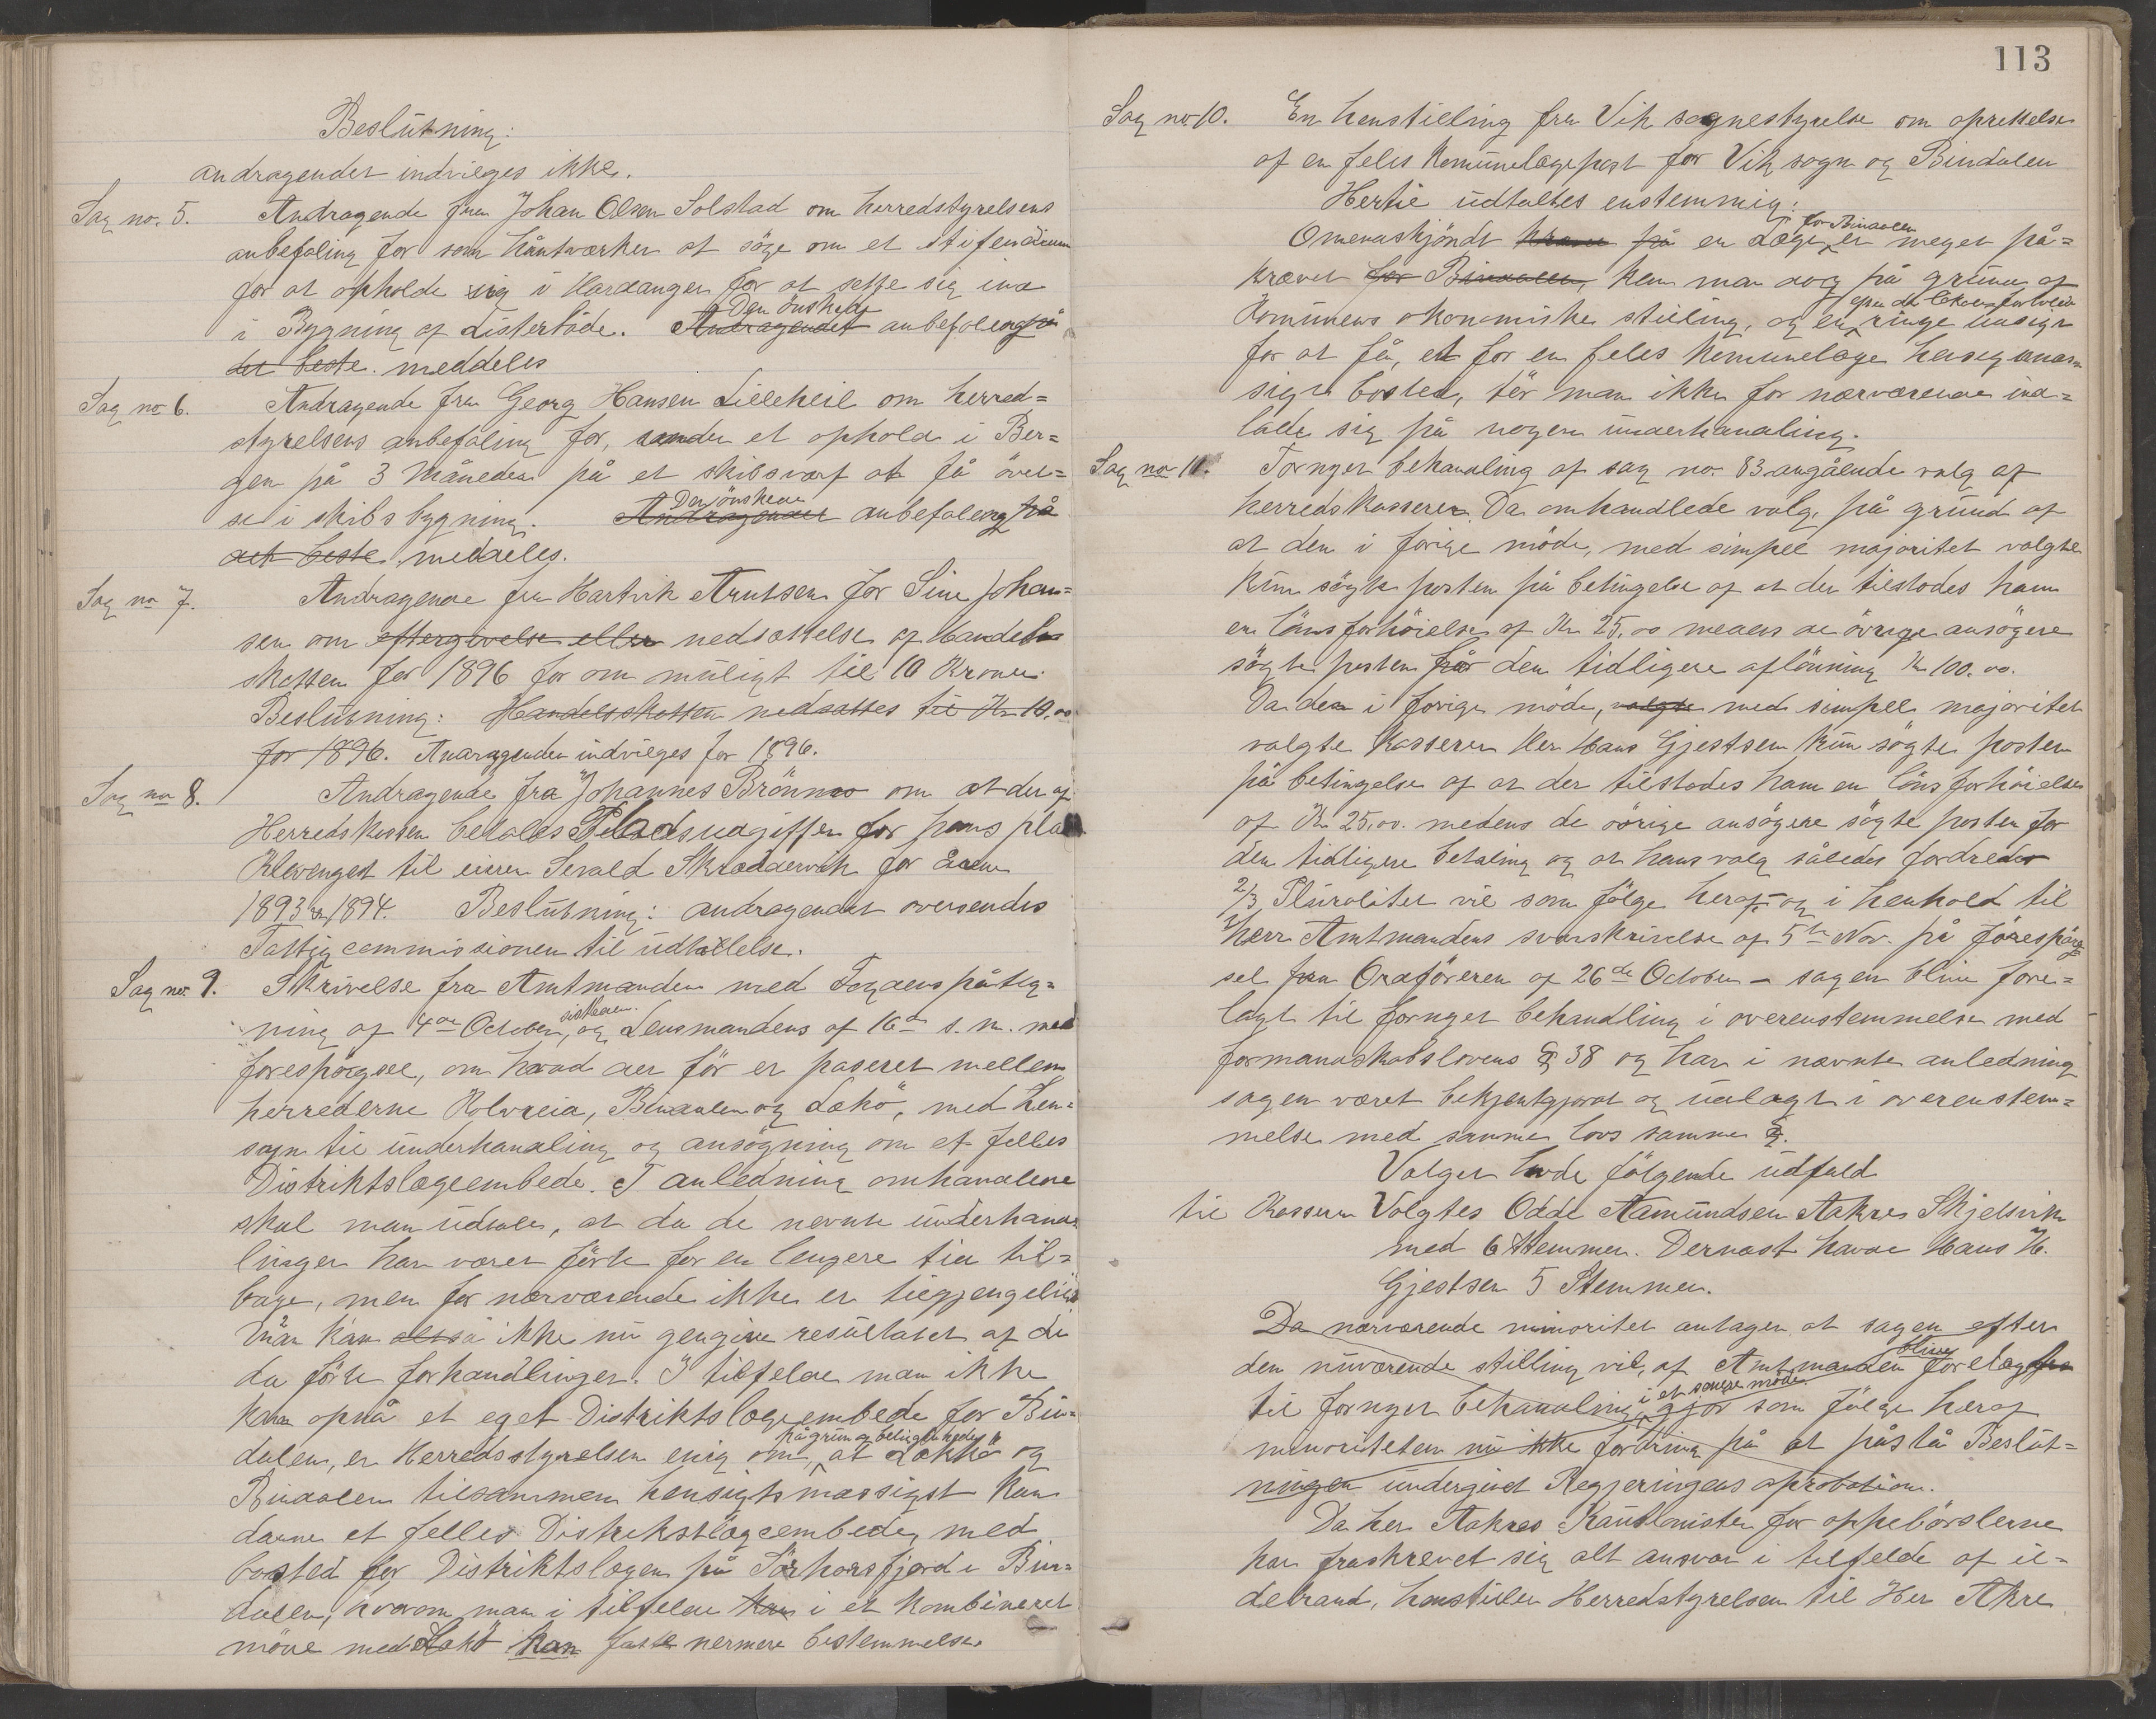 Beslutning:
andragendet indvilges ikke.
Sag no. 5. Andragende fra Johan Olsen Solstad om herredstyrelsens
anbefaling for som håntværker at söge om et stipendium
for at opholde sig i Hardanger for at sette sig ind
i Bygning af Listerböde. Andragendet Den önskede anbefaling på
det beste. meddeles
Sag no 6. Andragende fra Georg Hansen Lilleheil om herred=
styrelsens anbefaling for, under et ophold i Ber=
gen på 3 Måneder på et skibsverf at få övel=
se i skibsbygning. Andragendet Den önskede anbefaling på
det beste meddeles.
Sag no 7. Andragende fra Hartvik Arntsen for Sine Johan=
sen om eftergivelse eller nedsættelse af Handels
skatten for 1896 for om muligt til 10 Kroner.
Beslutning: Handelsskatten nedsattes til Kr 10.00
for 1896. Andragendet indvilges for 1896.
Sag no 8. Andragende fra Johannes Brönmo om at der af
Herredskassen betales Pladsudgifter for hans plads
Klevenget til eieren Sevald Skræddervik for årene
1893 & 1894. Beslutning: andragendet oversendes
Fattigcommissionen til udtallelse.
Sag no. 9. Skrivelse fra Amtmanden med Fogdens påteg=
ning af 4de October sistleden, og Lensmandens af 16de s. m. med
forespörgsel, om hvad der för er paseret mellem
herrederne Kolvreid, Bindalen og Lekö, med hen=
sagn til underhandling og ansögning om et felles
Distriktslægeembede. I anledning omhandlede
skal man udtale, at da de nevnte underhand=
linger har været förte for en lengere tid til=
bage, men for nærværende ikke er tilgjengelige
Man kan altså ikke nu gengive resultatet af de
da förte forhandlinger. I tilfelde man ikke
kan opnå et eget Distriktslægeembede for Bin=
dalen, er Herredsstyrelsen enig om, på grund af beliggenheden at Lekö og
Bindalen tilsammen hensigtsmæssigst kan
danne et felles Distriktslægeembede, med
bosted for Distriktslægen på Sörhorsfjord i Bin=
dalen, hvorom man i tilfelde kan i et kombineret
möde med Lekö kan fatte nermere bestemmelse.
113
Sag no 10. En henstilling fra Vik sognestyrelse om oprettelse
af en feles Komunelægepost for Vik sogn og Bindalen
Hertil udtaltes enstemmig:
Omendskjöndt på en Læge for Bindalen er meget på=
krævet for Bindalen, kan man dog på grund af
Komunens økonomiske stilling, og ringe udsigt
for at få, et for en feles Komunelæge hensigtsmæs
sigt bosted, tör man ikke for nærværende ind=
lade sig på nogen underhandling.
Sag no 11. Fornyet behandling af sag no. 83 angående valg af
herredskasserer. Da omhandlede valg, på grund af
at den i forige möde, med simpel majoritet valgte
kun sögte posten på betingelse af at der tilstodes ham
en lönsforhöielse af Kr 25,00 medens de övrige ansögere
sögte posten for den tidligere aflönning Kr 100.00.
Da den i forige möde, valgte med simpel majoritet
valgte Kasserer Herr Hans Gjestsen kun sögte posten
på betingelse af at der tilstodes ham en lönsforhöielse
af Kr 25,00. medens de övrige ansögere sögte posten for
den tidligere betaling og at hans valg således fordrede
2/3 Pluralitet vil som fölge heraf og i henhold til
Herr Amtmandens svarskrivelse af 5te Nov. på forespörg
sel fra Ordföreren af 26de October – sagen blive fore=
lagt til fornyet behandling i overenstemmelse med
formandskabslovens § 38 og har i nævnte anledning
sagen været bekjentgjort og udlagt i overenstem=
melse med samme lovs samme §.
Valget havde fölgende udfald
til Kasserer Valgtes Odde Aamundsen Aakre Skjelsvik
med 6 Stemmer. Dernæst havde Hans H.
Gjestsen 5 Stemmer.
Da nærværende minoritet antager at sagen efter
den nuværende stilling vil, af Amtmanden blive forelagt
til fornyet behandling i et senere möde gjör som fölge heraf
minoriteten nu ikke fordring på at påstå Beslut=
ningen undergivet Regjeringens aprobation.
Da her Aakres Kautionister for oppebörslerne
har fraskrevet sig alt ansvar i tilfelde af il=
debrand, henstiller Herredstyrelsen til Her Akre